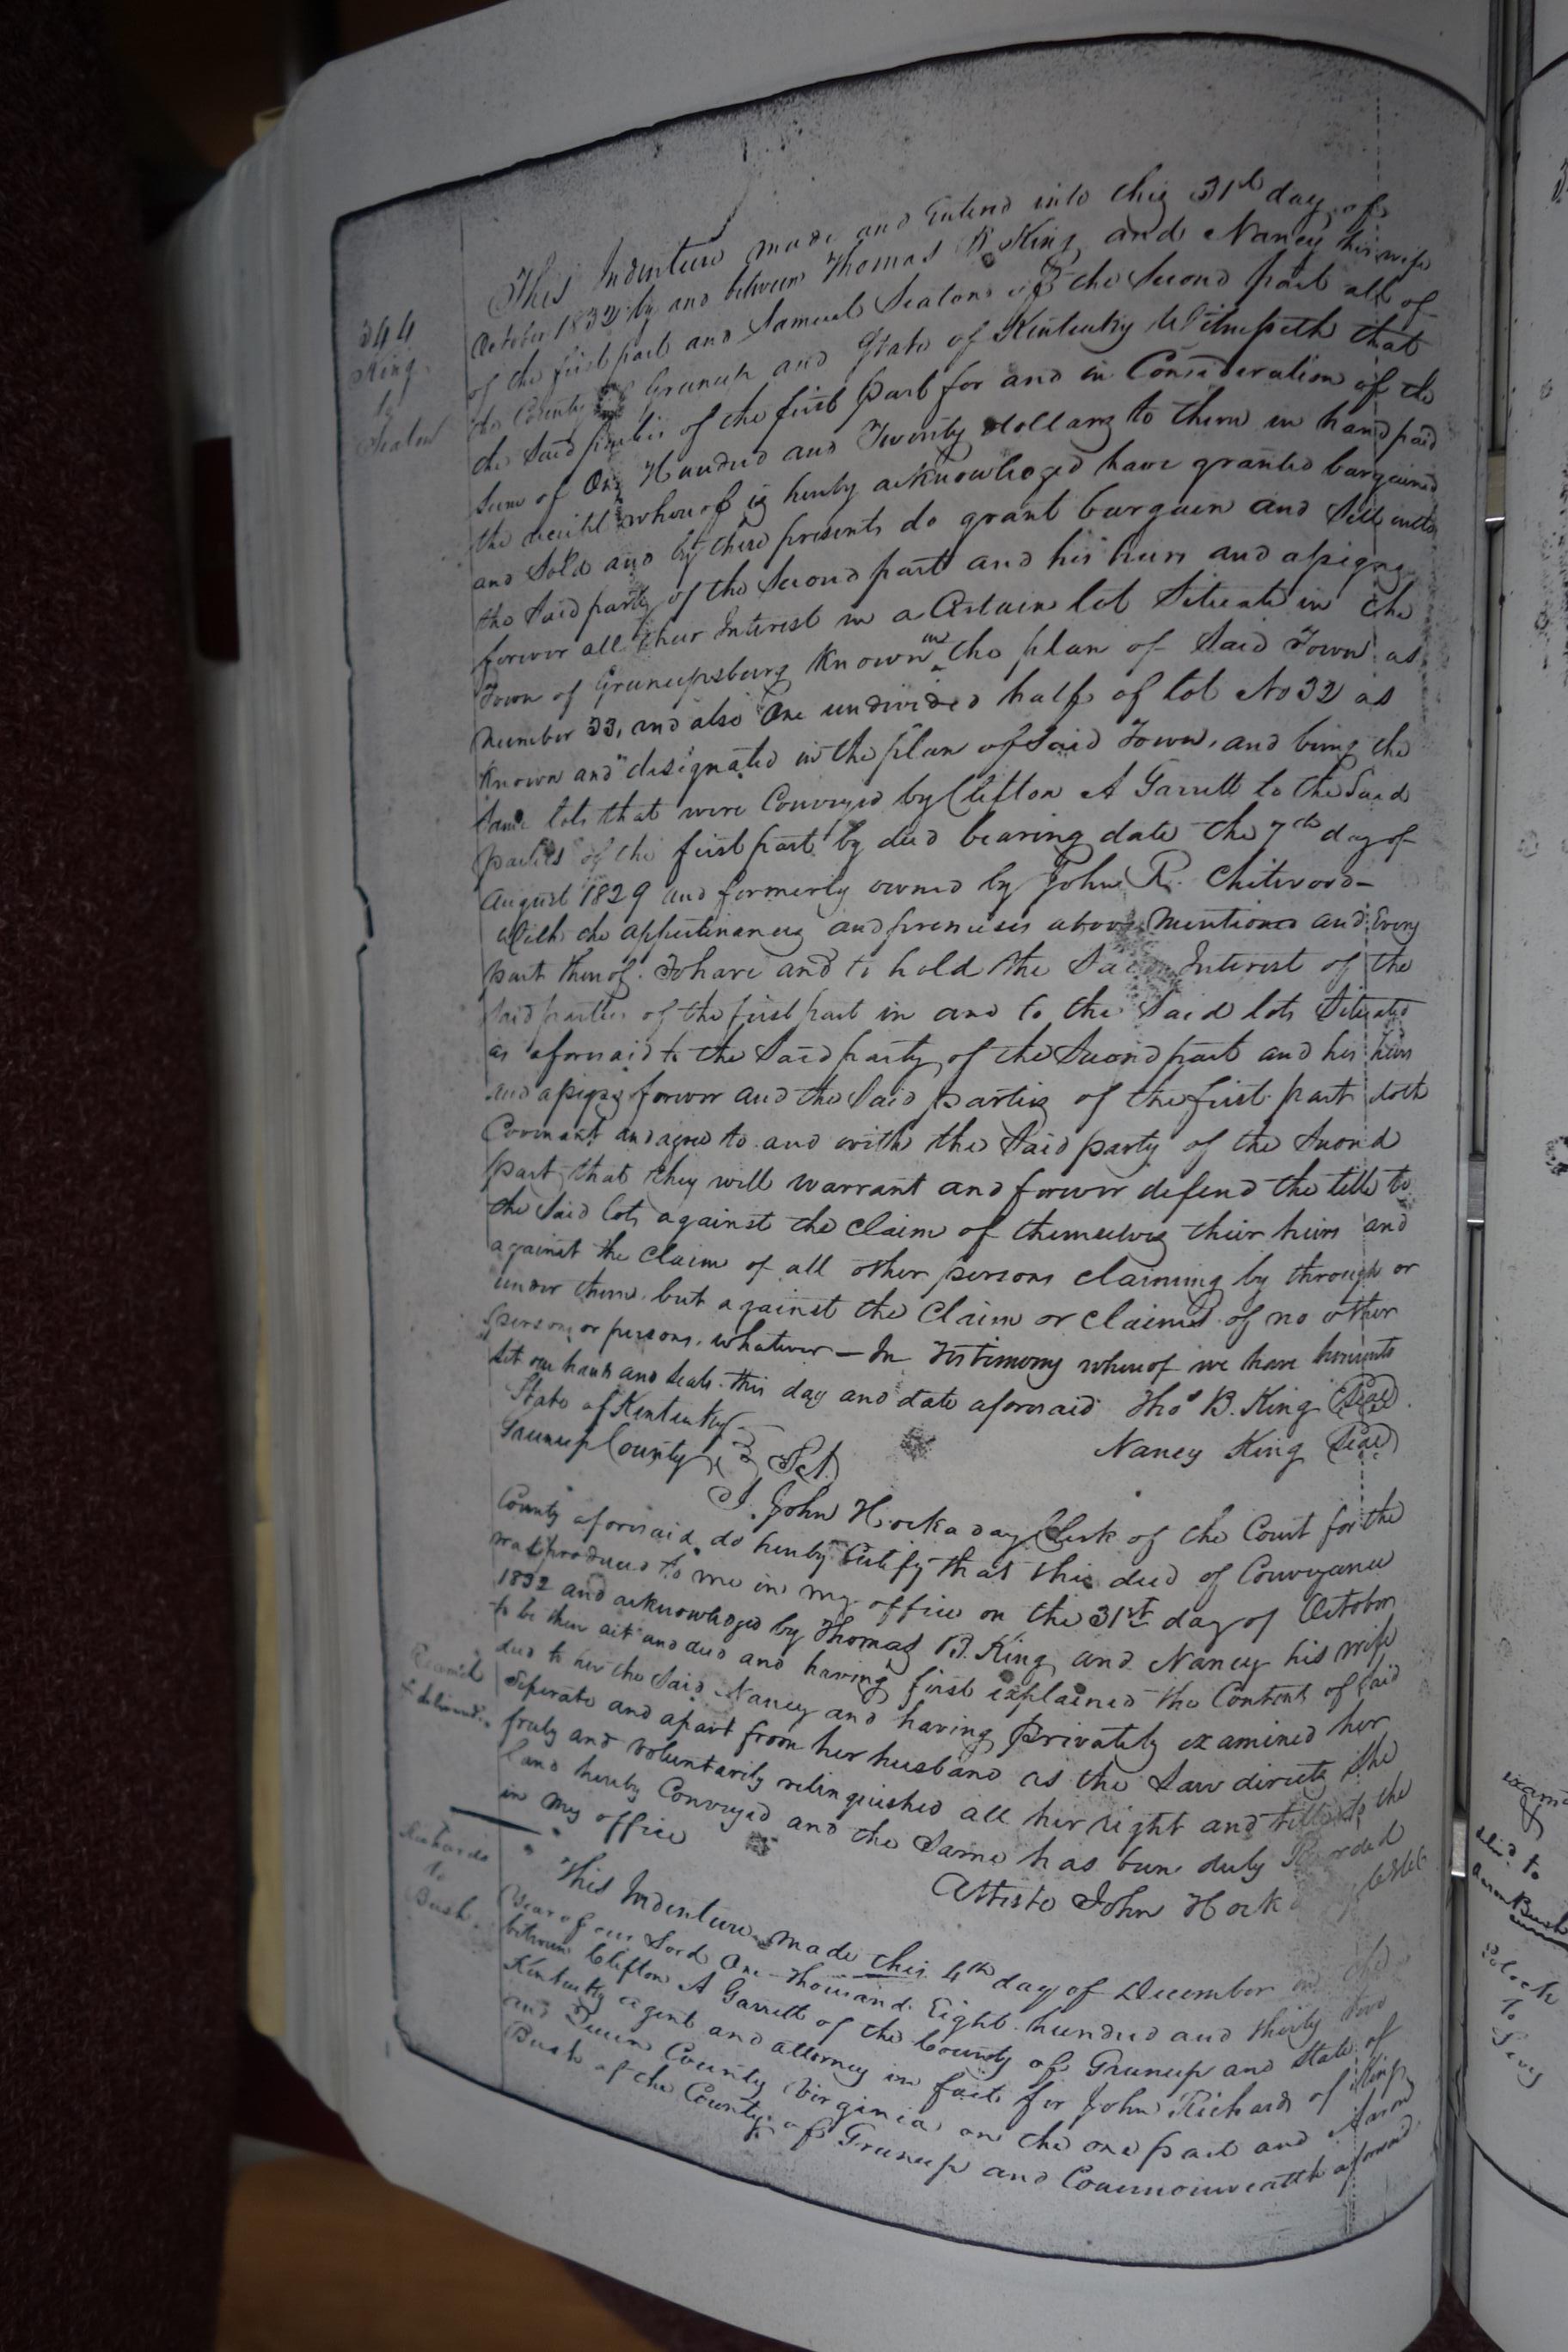 344
King
to
Seaton
This Indenture made and Entered into this 31st day of
October 1832 by and between Thomas B. King and Nancy his wife
of the first part and Samuel Seaton of the Second part all of
the County of Greenup and State of Kentucky Witnesseth that
the Said parties of the first part for and in Consideration of the
Sum of One Hundred and Twenty dollars to them in hand paid
the receipt whereof is hereby acknowledged have granted bargained
and Sold and by these presents do grant bargain and Sell unto
the Said party of the Second part and his heirs and assigns
forever all their Interest in a Certain lot Situate in the
Town of Greenupsburg Known in the plan of Said Town as
Number 33, and also One undivided half of lot No 32 as
Known and designated in the plan of Said Town, and being the
Same lots that were Conveyed by Clifton A Garrett to the Said
parties of the first part by deed bearing date the 7th day of
August 1829 and formerly owned by John R. Chitwood-
With the appurtinances and premises above mentioned and Every
part thereof. To have and to hold the Said Interest of the
Said parties of the first part in and to the Said lots Situated
as aforesaid to the Said party of the Second part and his heirs
and assigns forever and the Said parties of the first part doth
Covenant and agree to and with the Said party of the Second
part that they will warrant and forever defend the title to
the Said lots against the claim of themselves their heirs and
against the claim of all other persons claiming by through or
under them, but against the Claim or claims of no other
person or persons whatever — In Testimony whereof we have hereunto
Set our hands and Seals this day and date aforesaid Thos B. King (Seal)
Nancy King (Seal)
State of Kentucky
Greenup County Sct.
I. John Hockaday Clerk of the Court for the
County aforesaid do hereby Certify that this deed of Conveyance
was produced to me in my office on the 31st day of October
1832 and acknowledged by Thomas B. King and Nancy his wife
to be their act and deed and having first explained the Contents of Said
deed to her the Said Nancy and having Privately examined her
Seperate and apart from her husband as the Law directs She
freely and voluntarily relinquished all her right and title to the
land hereby Conveyed and the Same has been duly Recorded
in my office
Examd
& delivered
Atteste John Hock
Richards
to
Bush
This Indenture made this 4th day of December in the
Year of our Lord One thousand Eight hundred and thirty two
between Clifton A Garrett of the County of Greenup and State of
Kentucky agent and attorney in fact for John Richards of King
and Queen County Virginia on the one part and Aaron
Bush of the County of Greenup and Commonwealth aforesaid